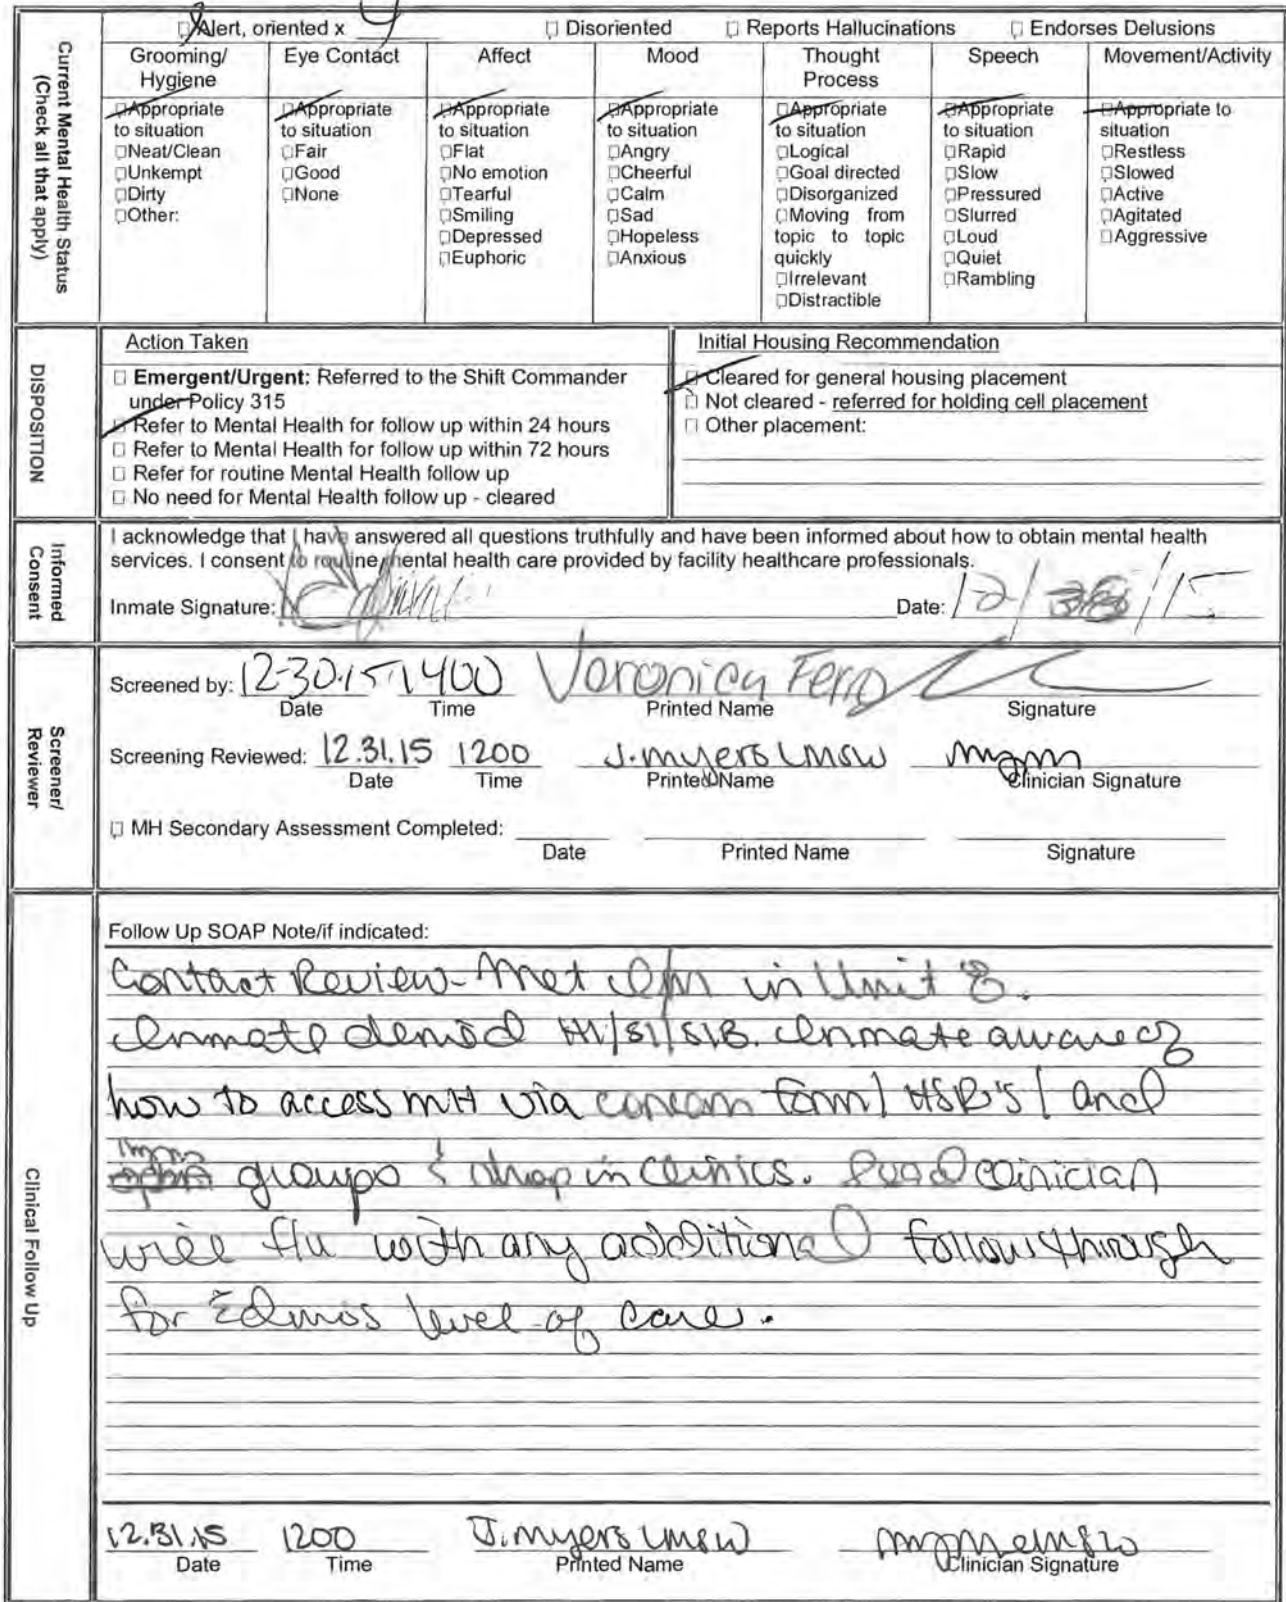 ☐ Alert, oriented x 4 ☐ Disoriented ☐ Reports Hallucinations ☐ Endorses Delusions
Current Mental Health Status
(Check all that apply)
Grooming/
Hygiene
☐Appropriate
to situation
☐Neat/Clean
☐Unkempt
☐Dirty
☐Other:
Eye Contact
☐Appropriate
to situation
☐Fair
☐Good
☐None
Affect
☐Appropriate
to situation
☐Flat
☐No emotion
☐Tearful
☐Smiling
☐Depressed
☐Euphoric
Mood
☐Appropriate
to situation
☐Angry
☐Cheerful
☐Calm
☐Sad
☐Hopeless
☐Anxious
Thought
Process
☐Appropriate
to situation
☐Logical
☐Goal directed
☐Disorganized
☐Moving from
topic to topic
quickly
☐Irrelevant
☐Distractible
Speech
☐Appropriate
to situation
☐Rapid
☐Slow
☐Pressured
☐Slurred
☐Loud
☐Quiet
☐Rambling
Movement/Activity
☐Appropriate to
situation
☐Restless
☐Slowed
☐Active
☐Agitated
☐Aggressive
DISPOSITION
Action Taken
☐ Emergent/Urgent: Referred to the Shift Commander
under Policy 315
☐ Refer to Mental Health for follow up within 24 hours
☐ Refer to Mental Health for follow up within 72 hours
☐ Refer for routine Mental Health follow up
☐ No need for Mental Health follow up - cleared
Initial Housing Recommendation
☐ Cleared for general housing placement
☐ Not cleared - referred for holding cell placement
☐ Other placement:
Informed
Consent
I acknowledge that I have answered all questions truthfully and have been informed about how to obtain mental health
services. I consent to routine mental health care provided by facility healthcare professionals.
Inmate Signature: Date: 12/ /15
Screener/
Reviewer
Screened by: 12-30-15 1400 Veronica Ferro
Date Time Printed Name Signature
Screening Reviewed: 12.31.15 1200 J. Myers LMSW
Date Time Printed Name Clinician Signature
☐ MH Secondary Assessment Completed:
Date Printed Name Signature
Clinical Follow Up
Follow Up SOAP Note/if indicated:
Contact Review - Met I/M in Unit 8.
Inmate denied HI/SI/SIB. Inmate aware of
how to access MH via concern form/ HSR's/ and
groups & drop in clinics. Lead clinician
will f/u with any additional followthrough
for Edmo's level of care.
12.31.15 1200 J. Myers LMSW
Date Time Printed Name Clinician Signature